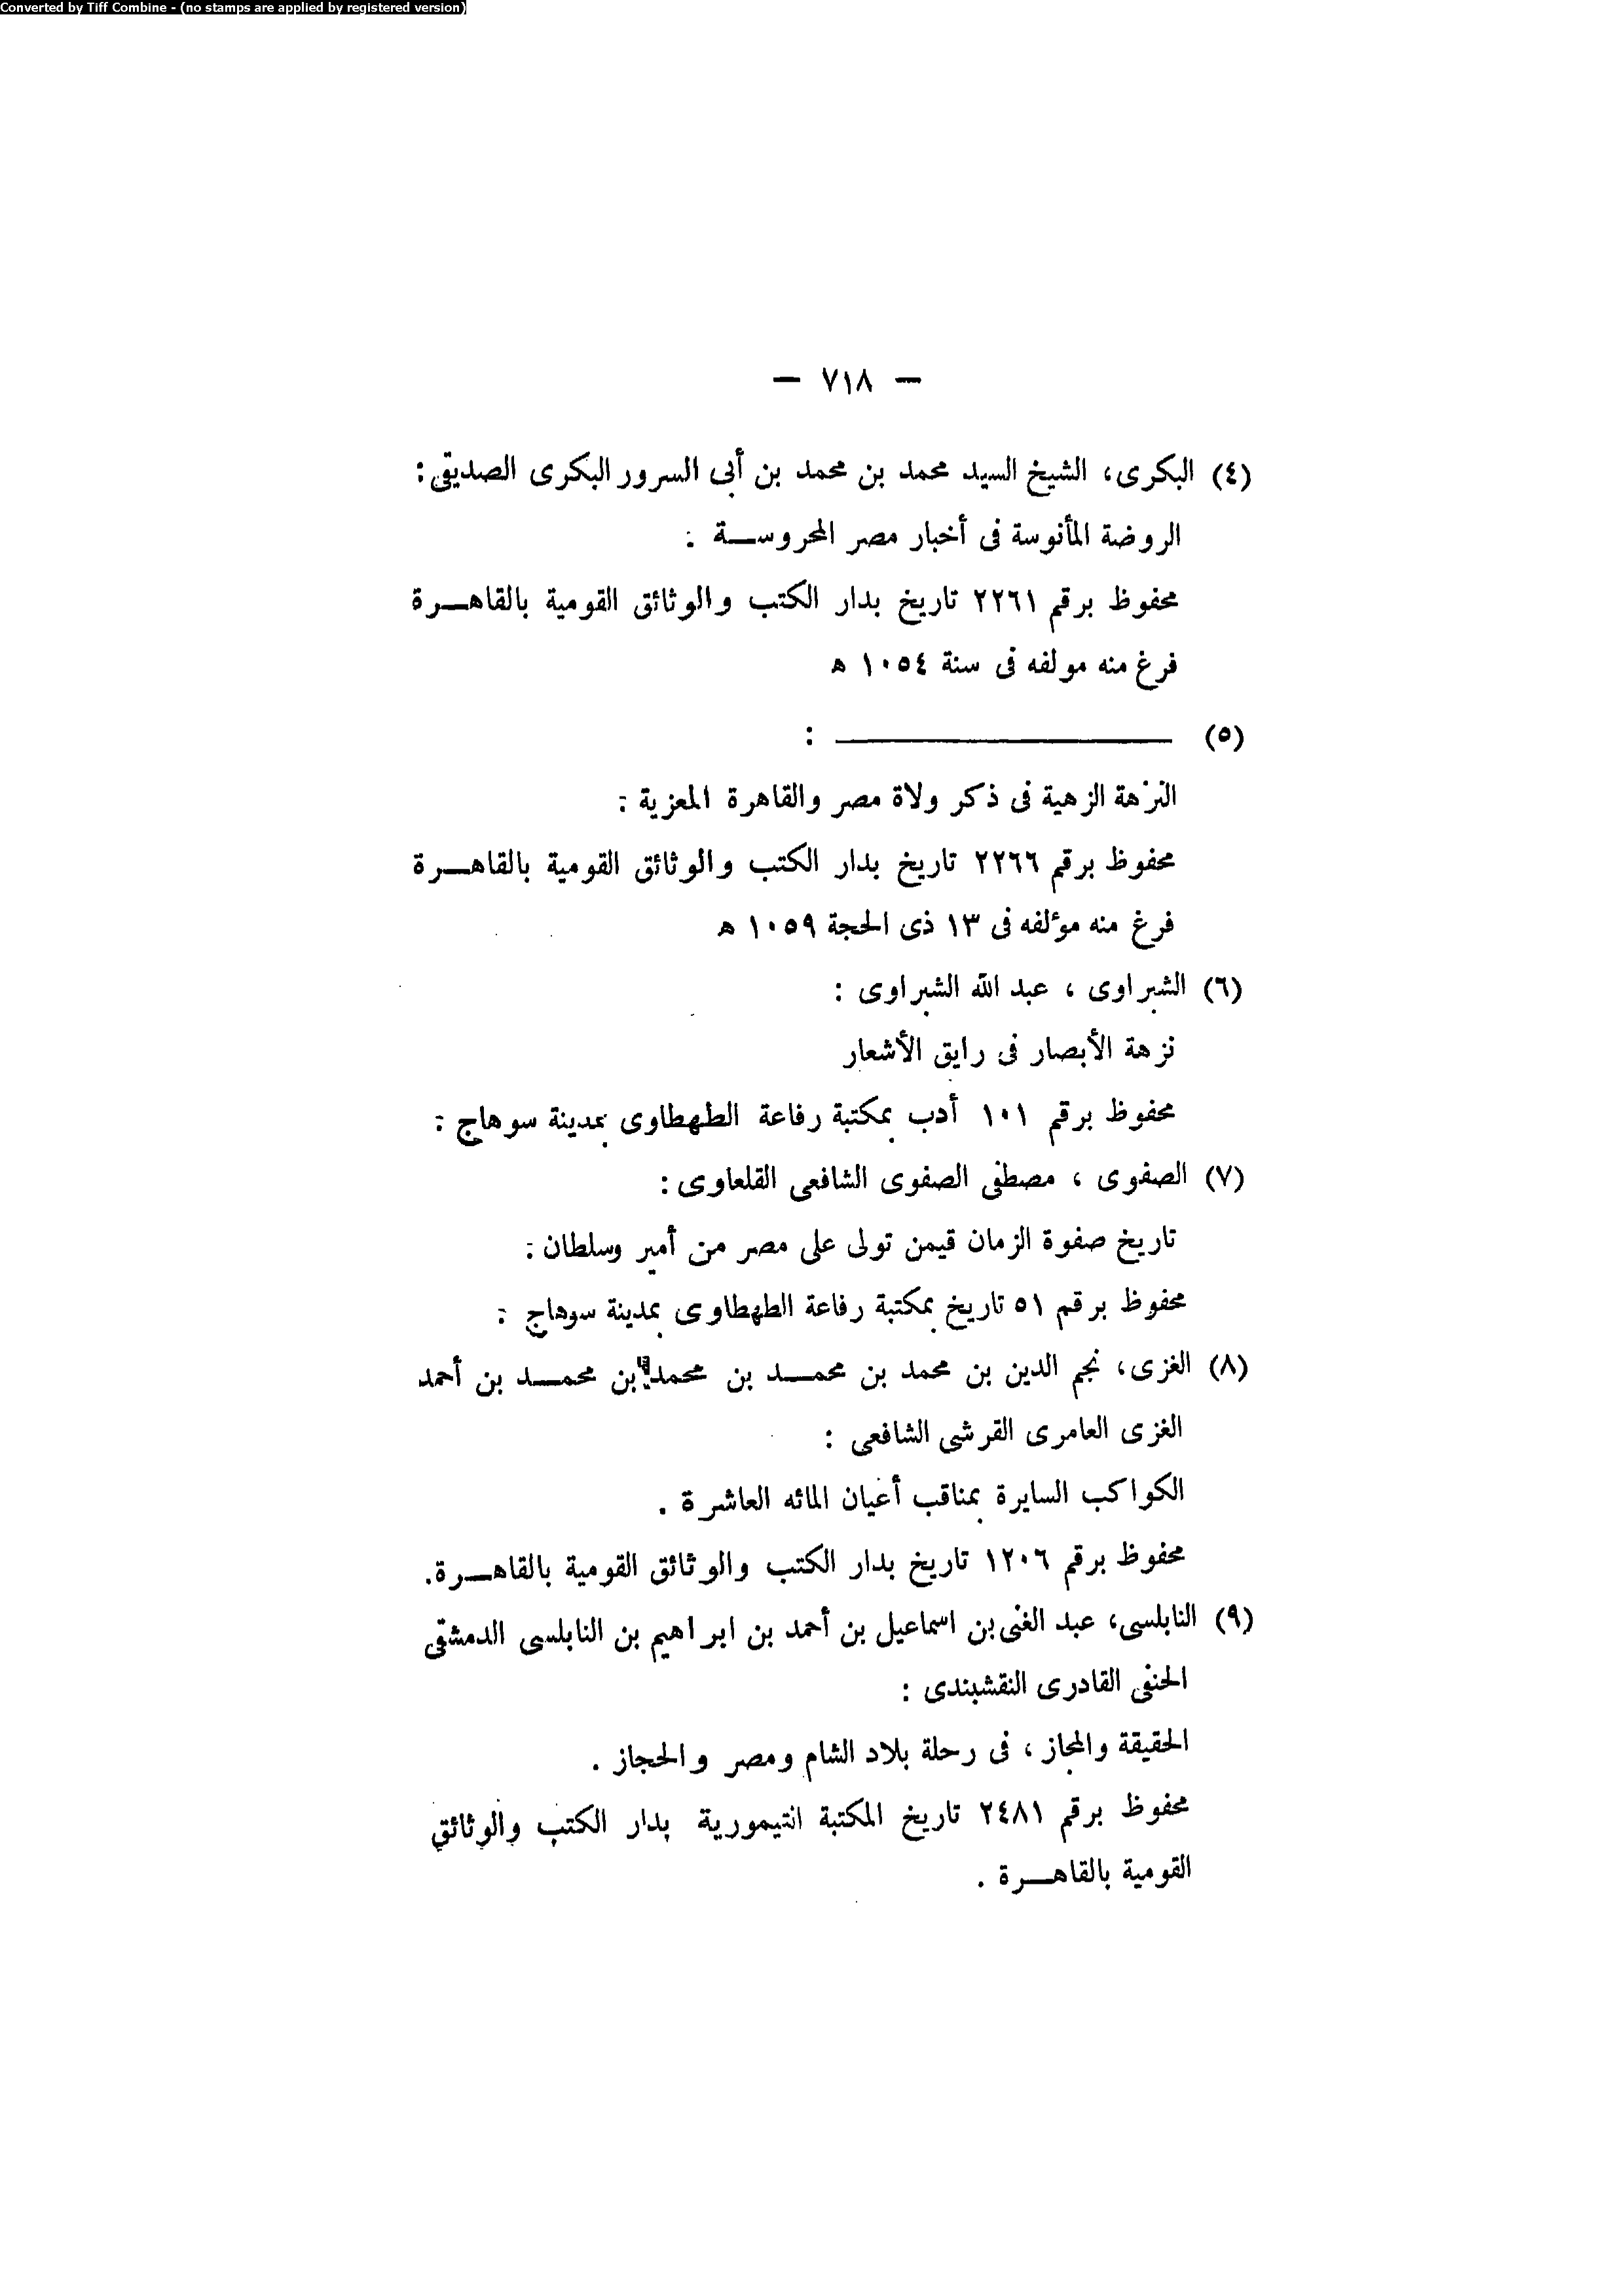 Converted by Tiff Combine - (no stamps are applied by registered version)
— ٧١٨ —
(٤) البكرى، الشيخ السيد محمد بن محمد بن أبى السرور البكرى الصديقى :
الروضة المأنوسة فى أخبار مصر المحروســة :
محفوظ برقم ٢٢٦١ تاريخ بدار الكتب والوثائق القومية بالقاهــرة
فرغ منه مولفه فى سنة ١٠٥٤ ه
(٥) ــــــــــــــــــــــــ :
النزهة الزهية فى ذكر ولاة مصر والقاهرة المعزية :
محفوظ برقم ٢٢٦٦ تاريخ بدار الكتب والوثائق القومية بالقاهــرة
فرغ منه مؤلفه فى ١٣ ذى الحجة ١٠٥٩ ه
(٦) الشبراوى ، عبد الله الشبراوى :
نزهة الأبصار فى رايق الأشعار
محفوظ برقم ١٠١ أدب بمكتبة رفاعة الطهطاوى بمدينة سوهاج :
(٧) الصفوى ، مصطفى الصفوى الشافعى القلعاوى :
تاريخ صفوة الزمان قيمن تولى على مصر من أمير وسلطان :
محفوظ برقم ٥١ تاريخ بمكتبة رفاعة الطهطاوى بمدينة سوهاج :
(٨) الغزى، نجم الدين بن محمد بن محمــد بن محمد بن محمــد بن أحمد
الغزى العامرى القرشى الشافعى :
الكواكب السايرة بمناقب أعيان المائه العاشرة .
محفوظ برقم ١٢٠٦ تاريخ بدار الكتب والوثائق القومية بالقاهــرة.
(٩) النابلسى، عبد الغنى بن اسماعيل بن أحمد بن ابراهيم بن النابلسى الدمشقى
الحنفى القادرى النقشبندى :
الحقيقة والمجاز ، فى رحلة بلاد الشام ومصر والحجاز .
محفوظ برقم ٢٤٨١ تاريخ المكتبة انتيمورية بدار الكتب والوثائق
القومية بالقاهــرة .